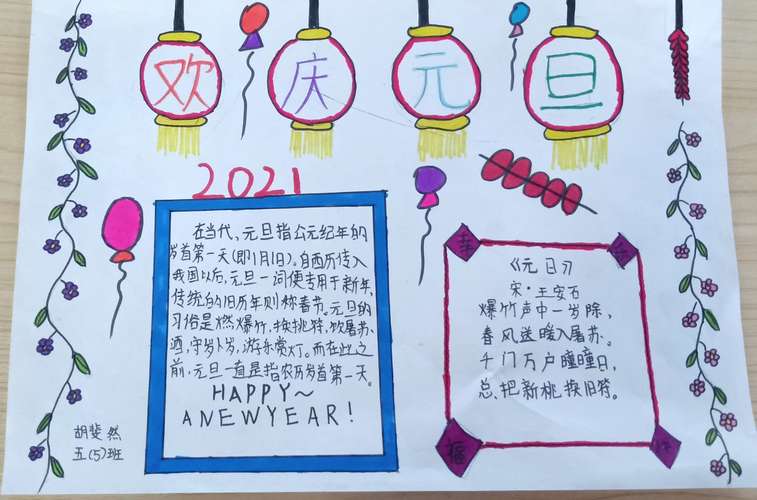 欢庆元旦
2021
在当代、元旦指公元纪年的
岁首第一天(即1月1日)。自西历传入
我国以后,元旦一词便专用于新年,
传统的旧历年则称春节。元旦的
习俗是燃爆竹,换挑符,饮屠苏
酒,守岁卜岁,游乐赏灯。而在此之
前,元旦一直是指农历岁首第一天。
HAPPY~
A NEW YEAR!
《元日》
宋·王安石
爆竹声中一岁除,
春风送暖入屠苏。
千门万户曈曈日,
总把新桃换旧符。
胡斐然
五(5)班